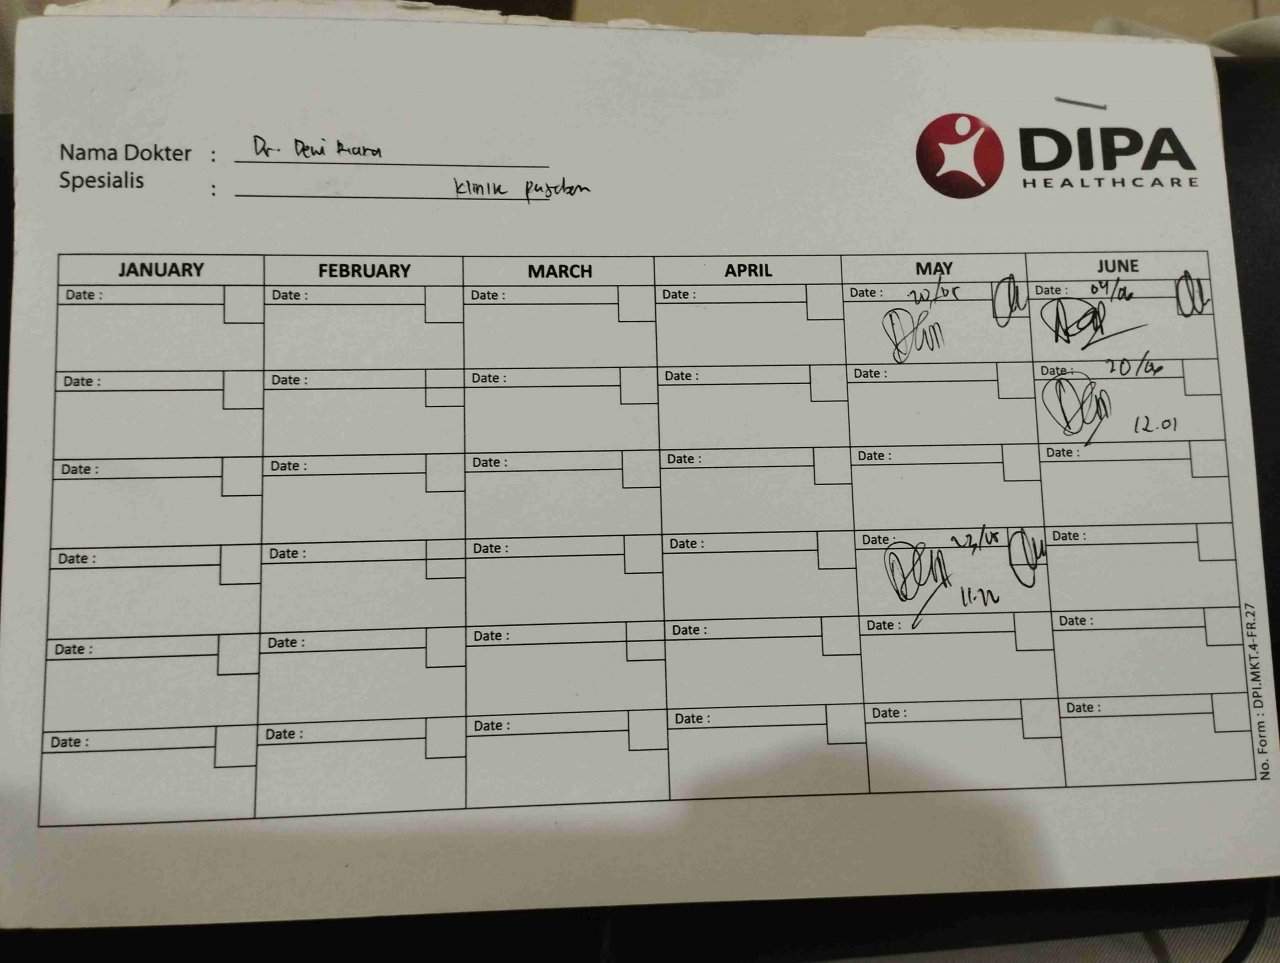 DIPA
HEALTHCARE
Nama Dokter : Dr. Dewi
Spesialis : Klinik
JANUARY FEBRUARY MARCH APRIL MAY JUNE
Date : Date : Date : Date : Date : 20/05 Date : 04/06
Date : Date : Date : Date : Date : Date : 20/06
12.01
Date : Date : Date : Date : Date : Date :
Date : Date : Date : Date : Date : 23/05 Date :
11.22
Date : Date : Date : Date : Date : Date :
Date : Date : Date : Date : Date : Date :
No. Form : DPI.MKT.4-FR.27